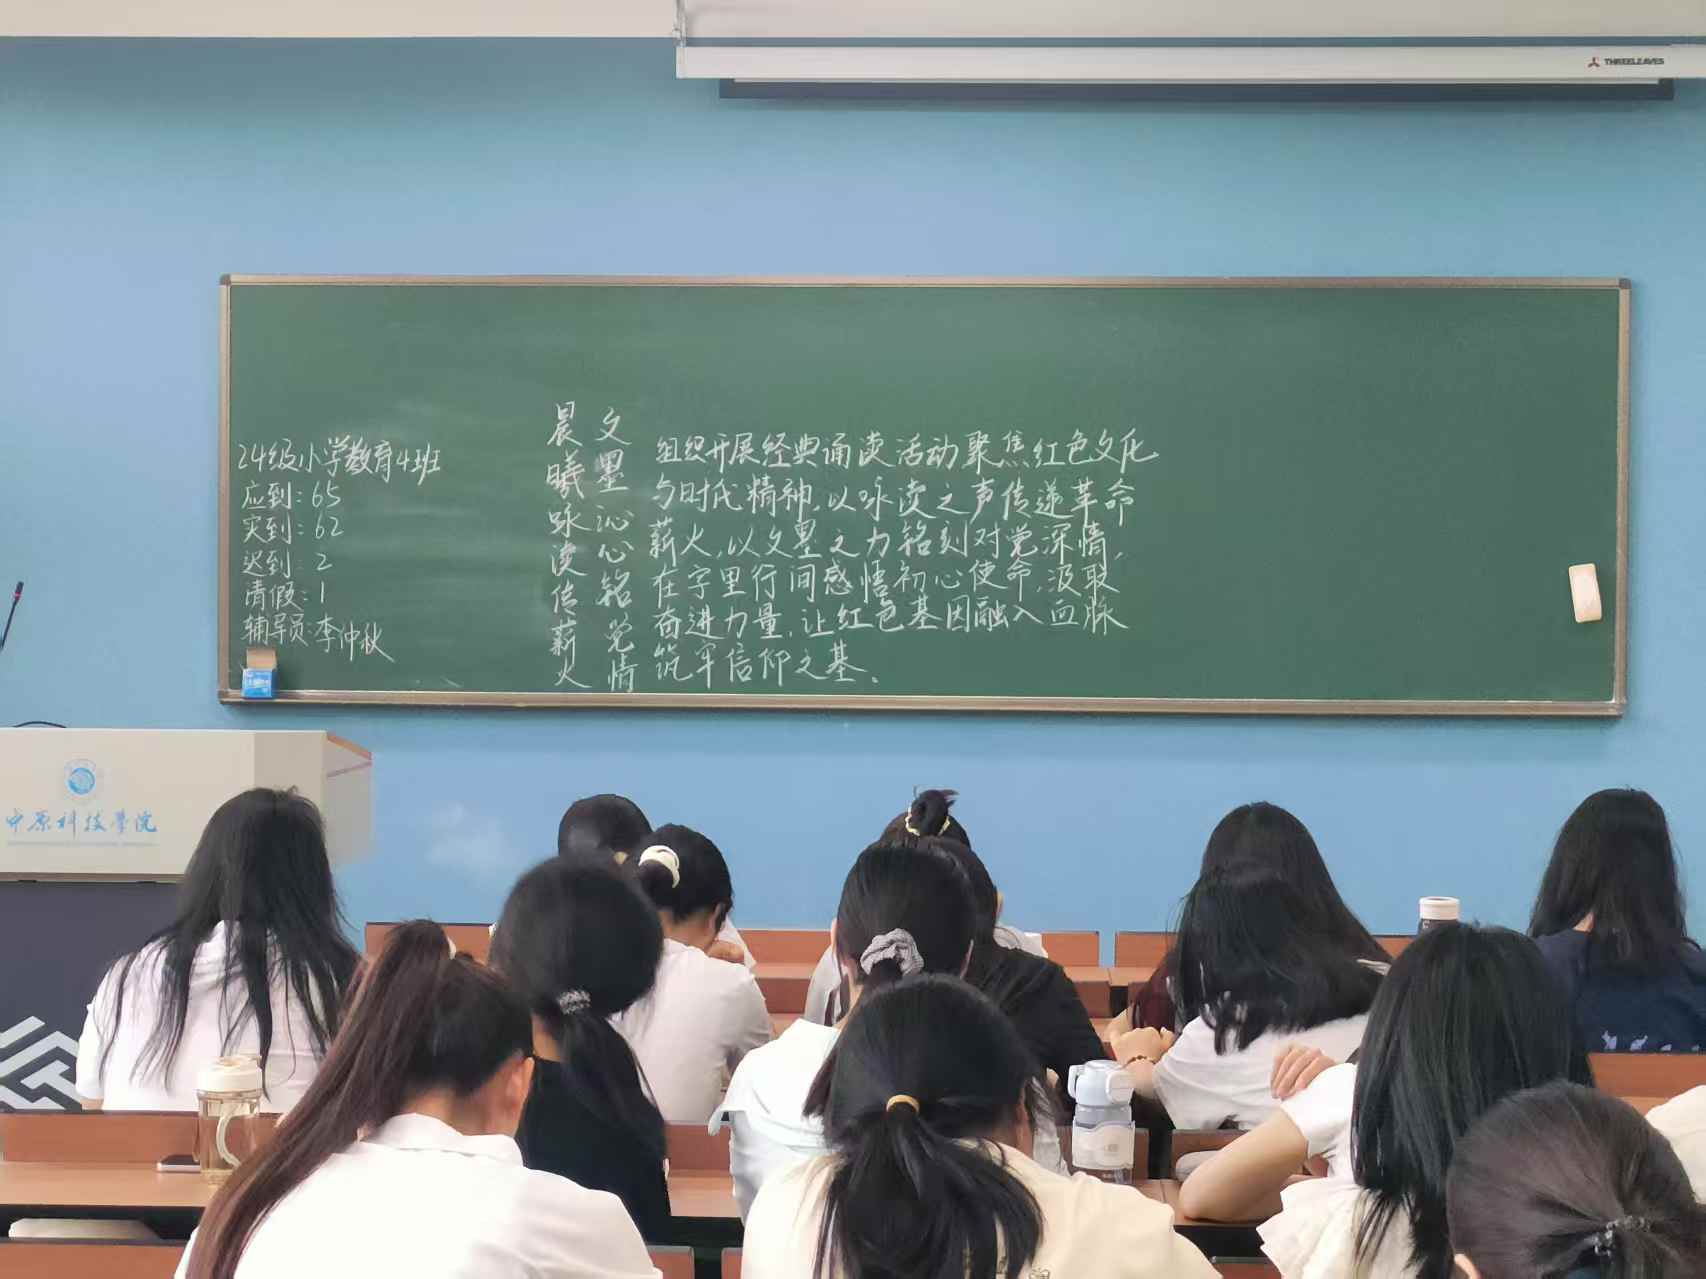 THREELEAVES
24级小学教育4班
应到：65
实到：62
迟到：2
请假：1
辅导员：李仲秋
晨曦咏读传薪火
文墨沁心铭党情
组织开展经典诵读活动聚焦红色文化
与时代精神，以咏读之声传递革命
薪火，以文墨之力铭刻对党深情，
在字里行间感悟初心使命，汲取
奋进力量，让红色基因融入血脉
筑牢信仰之基。
中原科技学院